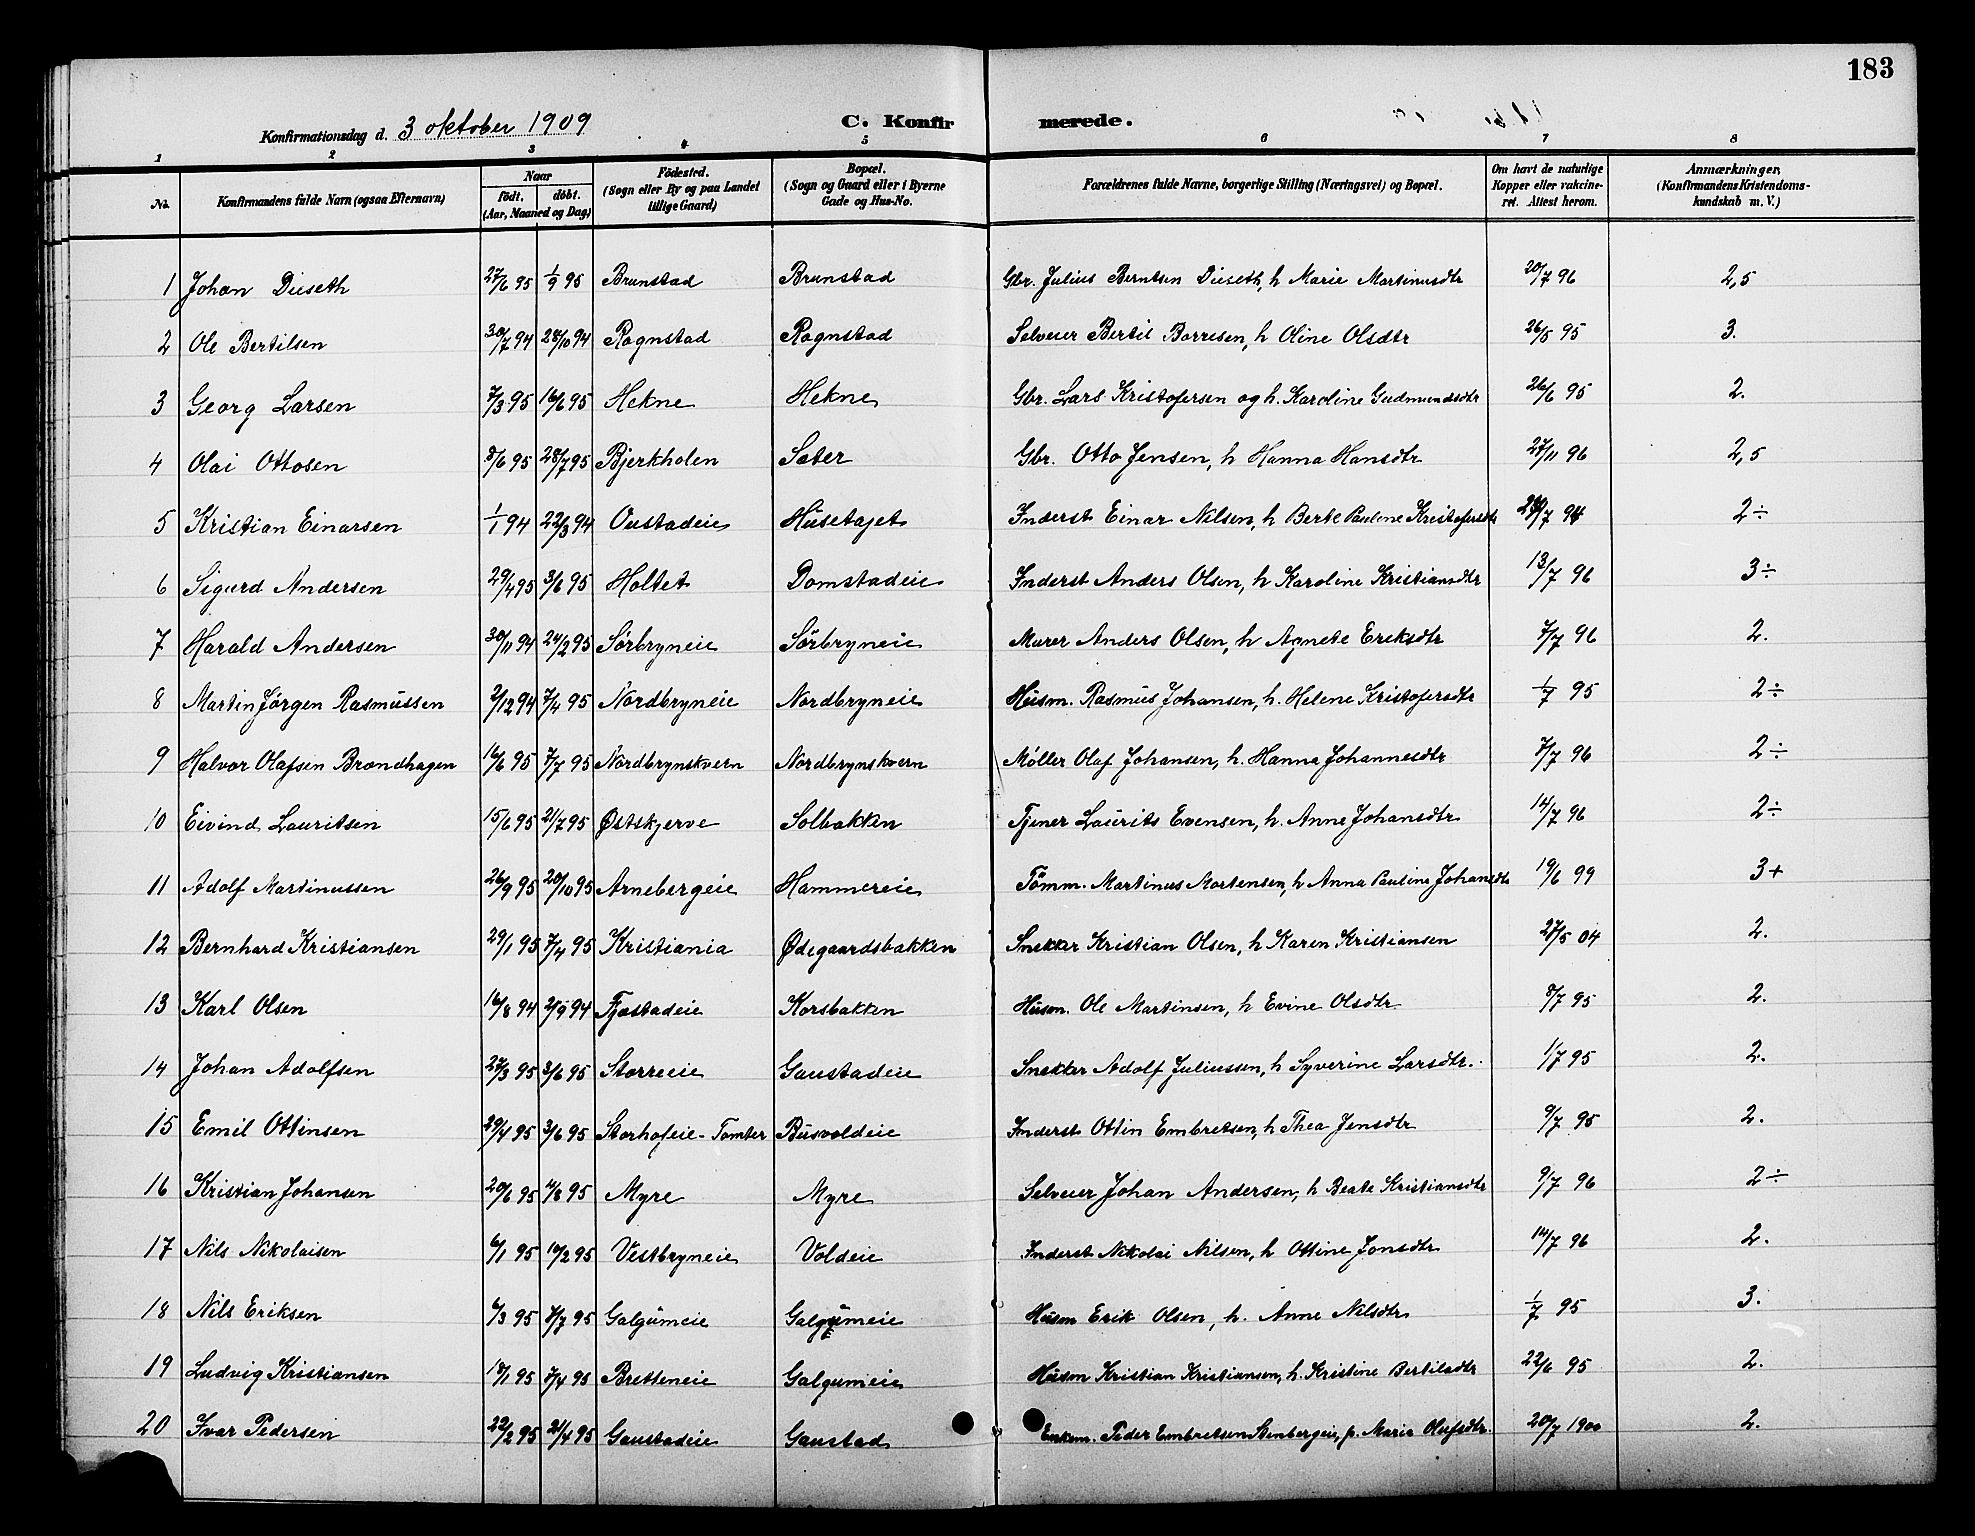 183
Konfirmationsdag d. 3 oktober 1909 C. Konfirmerede.
1 2 3 4 5 6 7 8
No. Konfirmandens fulde Navn (ogsaa Efternavn) Naar født, døbt. (Aar, Maaned og Dag) Fødested. (Sogn eller By og paa Landet tillige Gaard) Bopæl. (Sogn og Gaard eller i Byerne Gade og Hus-No. Forældrenes fulde Navne, borgerlige Stilling (Næringsvei) og Bopæl. Om havt de naturlige Kopper eller vakcineret. Attest herom. Anmærkninger, (Konfirmandens Kristendomskundskab m. V.)
1 Johan Diseth 27/6 95 1/9 95 Brunstad Brunstad Gbr. Julius Berntsen Diseth, h Marie Martinusdtr 20/7 96 2,5
2 Ole Bertilsen 30/7 94 28/10 94 Rognstad Rognstad Selveier Bertil Borresen, h Oline Olsdtr 26/5 95 3.
3 Georg Larsen 7/3 95 16/6 95 Hekne Hekne Gbr. Lars Kristofersen og h. Karoline Gudmundsdtr 26/6 95 2.
4 Olai Ottosen 8/6 95 28/7 95 Bjerkholen Sæter Gbr. Otto Jensen, h Hanna Hansdtr 27/11 96 2,5
5 Kristian Einarsen 1/1 94 22/3 94 Oustadeie Husetajet Inderst Einar Nilsen, h Berte Pauline Kristofersdtr /7 94 2÷
6 Sigurd Andersen 29/4 95 3/6 95 Holtet Domstadeie Inderst Anders Olsen, h Karoline Kristiansdtr 13/7 96 3÷
7 Harald Andersen 30/11 94 24/2 95 Sørbryneie Sørbryneie Murer Anders Olsen, h Agnete Eriksdtr 7/7 96 2.
8 Martin Jørgen Rasmussen 2/12 94 7/4 95 Nordbryneie Nordbryneie Husm. Rasmus Johansen, h. Helene Kristofersdtr 1/7 95 2÷
9 Halvor Olafsen Brændhagen 16/6 95 7/7 95 Nordbrynskvern Nordbrynskvern Møller Olaf Johansen, h. Hanna Johannesdtr 7/7 96 2÷
10 Eivind Lauritsen 15/6 95 21/7 95 Østskjerve Solbakken Tjener Laurits Evensen, h. Anne Johansdtr 14/7 96 2÷
11 Adolf Martinussen 26/9 95 20/10 95 Arnebergeie Hammereie Tømm. Martinus Mortensen, h Anna Pauline Johansdtr 19/6 99 3+
12 Bernhard Kristiansen 29/1 95 7/4 95 Kristiania Ødegaardsbakken Snekker Kristian Olsen, h Karen Kristiansen 27/5 04 2.
13 Karl Olsen 16/8 94 /9 94 Fjæstadeie Korsbakken Husm. Ole Martinsen, h Evine Olsdtr 8/7 95 2.
14 Johan Adolfsen 27/3 95 3/6 95 Storreeie Gaustadeie Snekker Adolf Juliussen, h Syverine Larsdtr. 1/7 95 2.
15 Emil Ottinsen 29/4 95 3/6 95 Storhofeie-Tomter Busvoldeie Inderst Ottin Embretsen, h Thea Jensdtr 9/7 95 2.
16 Kristian Johansen 20/6 95 4/8 95 Myre Myre Selveier Johan Andersen, h Beate Kristiansdtr 9/7 96 2÷
17 Nils Nikolaisen 6/1 95 10/2 95 Vestbryneie Voldeie Inderst Nikolai Nilsen, h Ottine Jonsdtr 14/7 96 2.
18 Nils Eriksen 6/3 95 7/7 95 Galgumeie Galgumeie Husm Erik Olsen, h. Anne Nilsdtr 1/7 95 3.
19 Ludvig Kristiansen 18/1 95 7/4 95 Bretteneie Galgumeie Husm Kristian Kristiansen, h. Kristine Bertilsdtr 22/6 95 2.
20 Ivar Pedersen 22/2 95 21/4 95 Gaustadeie Gaustad Enkem. Peder Embretsen Stenbergeie, f. Marie Olufsdtr. 20/7 1900 2.